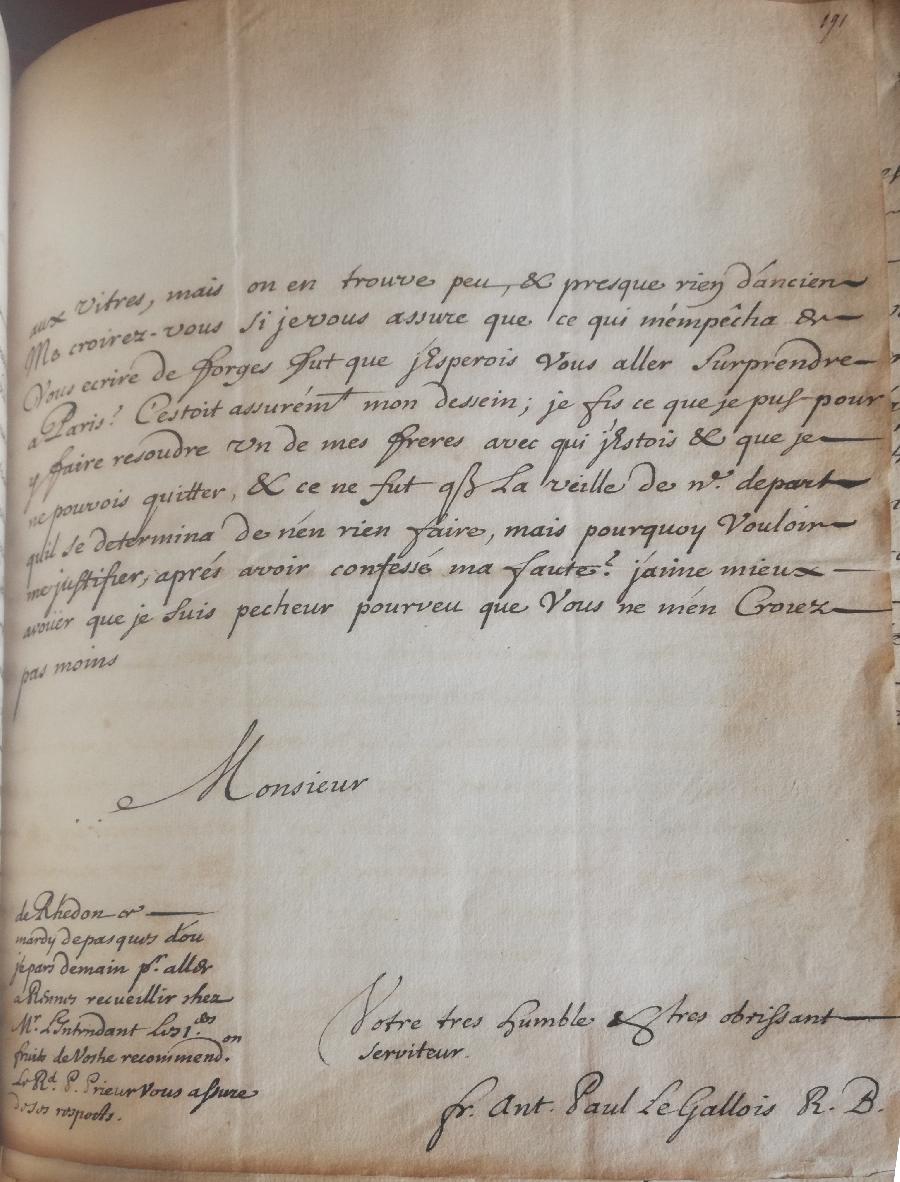 191
aux vitres, mais on en trouve peu, & presque rien d'ancien
Me croirez-vous si je vous assure que ce qui m'empêcha de
Vous ecrire de fforges ffut que j'Esperois Vous aller Surprendre
a Paris? C'estoit assurém.t mon dessein; je fis ce que je pus pour
y ffaire resoudre Un de mes ffreres avec qui j'Estois & que je
ne pouvois quitter, & ce ne fut La veille de n.e depart
qu'il se determina de n'en rien faire, mais pourquoy Vouloir
me justifier, aprés avoir confessé ma faute? j'aime mieux
avoüer que je suis pecheur pourveu que Vous ne m'en Croiez
pas moins
Monsieur
de Rhedon ce
mardy de pasques d'ou
je pars demain p.r aller
a Rennes recueillir chez
M.r L'Intendant les 1.ers
fruits de Vostre recommend.on
Le R.d P. Prieur Vous assure
de ses respects.
Votre tres humble & tres obeissant
serviteur.
fr. Ant. Paul Le Gallois R. B.